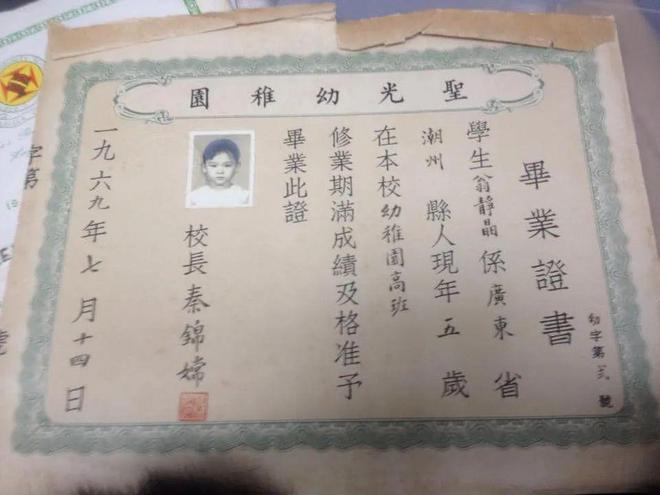 聖光幼稚園
畢業證書
幼字第 號
學生翁靜晶係廣東省
潮州縣人現年五歲
在本校幼稚園高班
修業期滿成績及格准予
畢業此證
校長秦錦嫦
一九六九年七月十四日